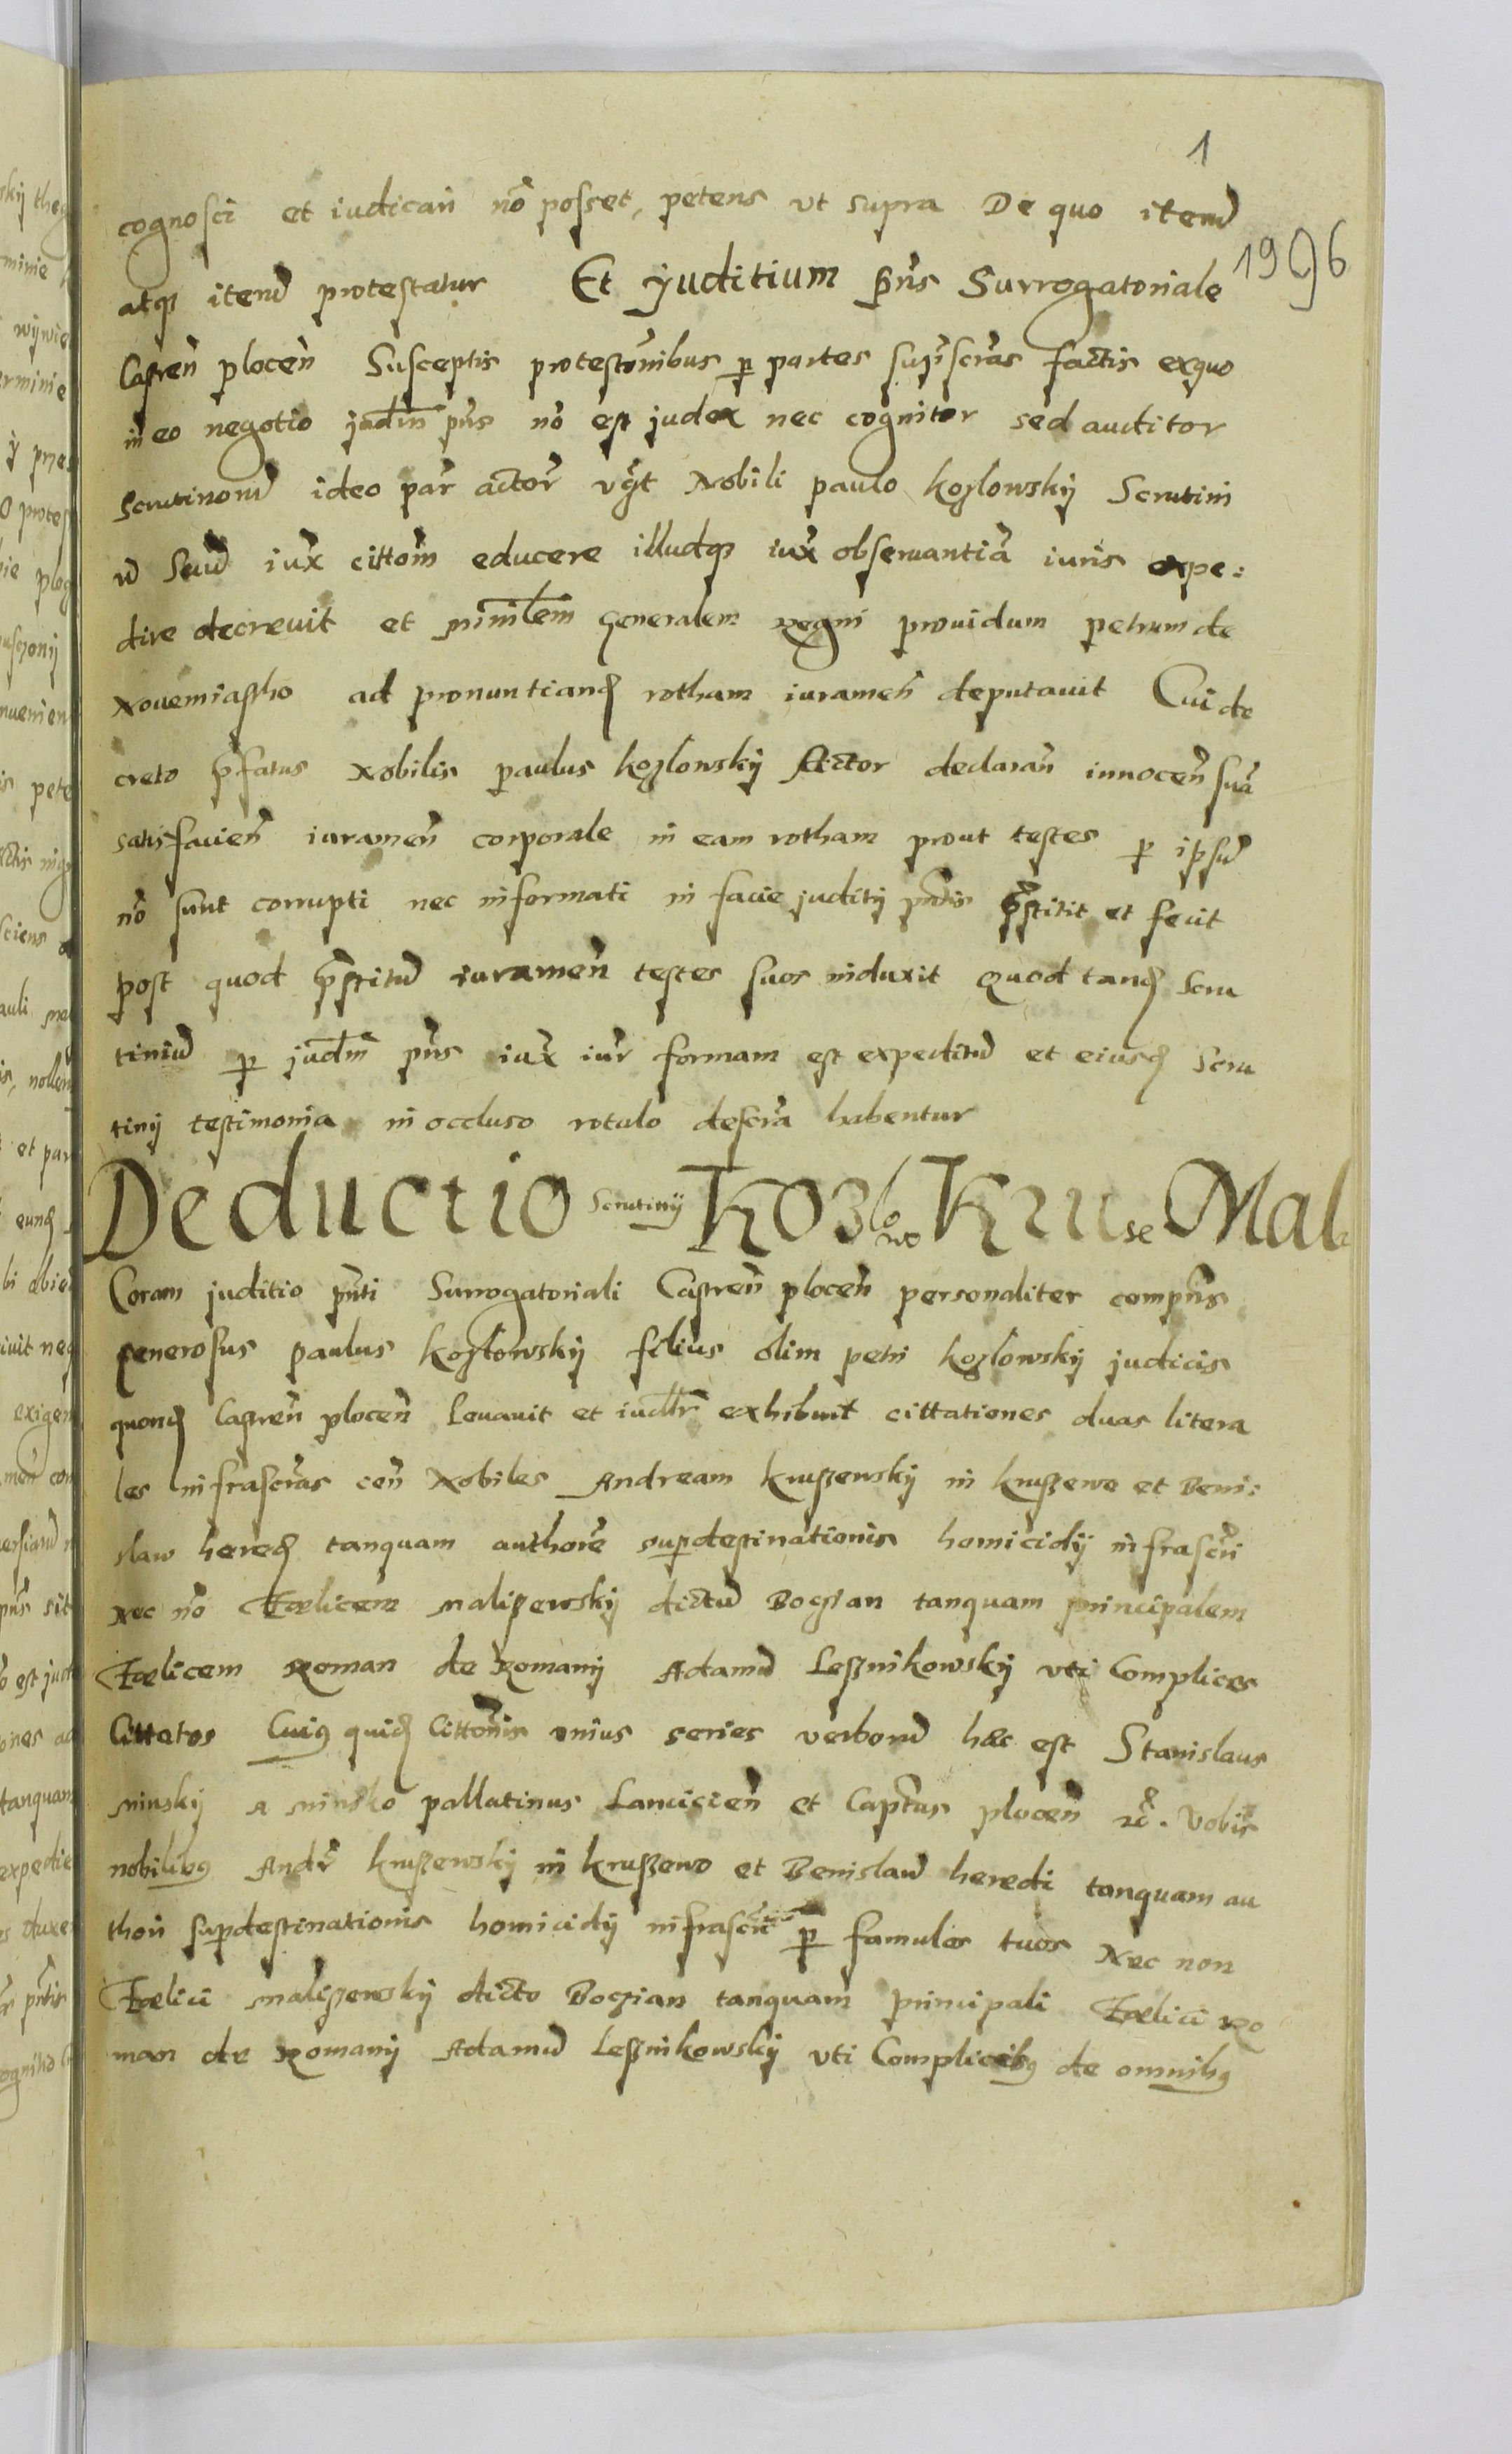 1
cognosci et iudicari nõ posset, petens vt supra De quo itend
1996
atq3 itend protestatur Et Juditium p̃ns Surrogatoriale
Castreñ ploceñ Susceptis protestõnibus p partes supˢscr̃as factis exquo
in eo negotio jud̃m pñs nõ est judex nec cognitor sed auditor
Scrutinorũ ideo par̃ actor̃ vg̃t Nobili paulo kozlowsky Scrutini
ũ Suũ iux̃ cittõm educere illudq3 iux̃ obseruantiã iuris expe:
dire decreuit et mĩnĩlem Generalem regni prouidum petrum de
Nouemiastho ad pronuntiand rotham iurameñ deputauit Cui de
creto p̃fatus Nobilis paulus kozlowsky Actor declarañ innoceñ suã
satisfacieñ iurameñ corporale in eam rotham prout testes p ipsũ
nõ sunt corrupti nec informati in facie juditij pñtis p̃stitit et fecit
post quod p̃stitũ iurameñ testes suos induxit Quod tand Scru
tiniũ p jud̃m pñs iux̃ iur̃ formam est expeditũ et eiusd Scru
tinij testimonia in occluso rotulo descr̃a habentur
Deductio Scrutinij Kozlowo Kruse Mal
Coram juditio pñti Surrogatoriali Castreñ ploceñ personaliter compñs
generosus paulus kozlowsky filius olim petri kozlowsky judicis
quond Castreñ ploceñ leuauit et iudl̃r exhibuit cittationes duas litera
les infrascr̃as ceñ Nobiles Andream kruszewsky in kruszewo et Beni:
slaw hered tanquam authorẽ supdestinationis homicidij infrascr̃i
Nec nõ Fœlicem maliszewsky dictũ Boczian tanquam principalem
Fœlicem Roman de Romany Adamũ Lesznikowsky vti Complices
Cittatos Cuiq quid Cittõnis vnius series verborũ hæc est Stanislaus
minsky A minsko pallatinus Lancicieñ et Capt̃us ploceñ ꝛc̃. Vobis
nobilibq Andr̃ kruszewsky in kruszewo et Benislaw heredi tanquam au
thori supdestinationis homicidij infrascr̃i p famulos tuos Nec non
Fœlici maliszewsky dicto Boczian tanquam principali Fœlici Ro
man de Romany Adamũ Lesznikowsky vti Complicibq de omnibq